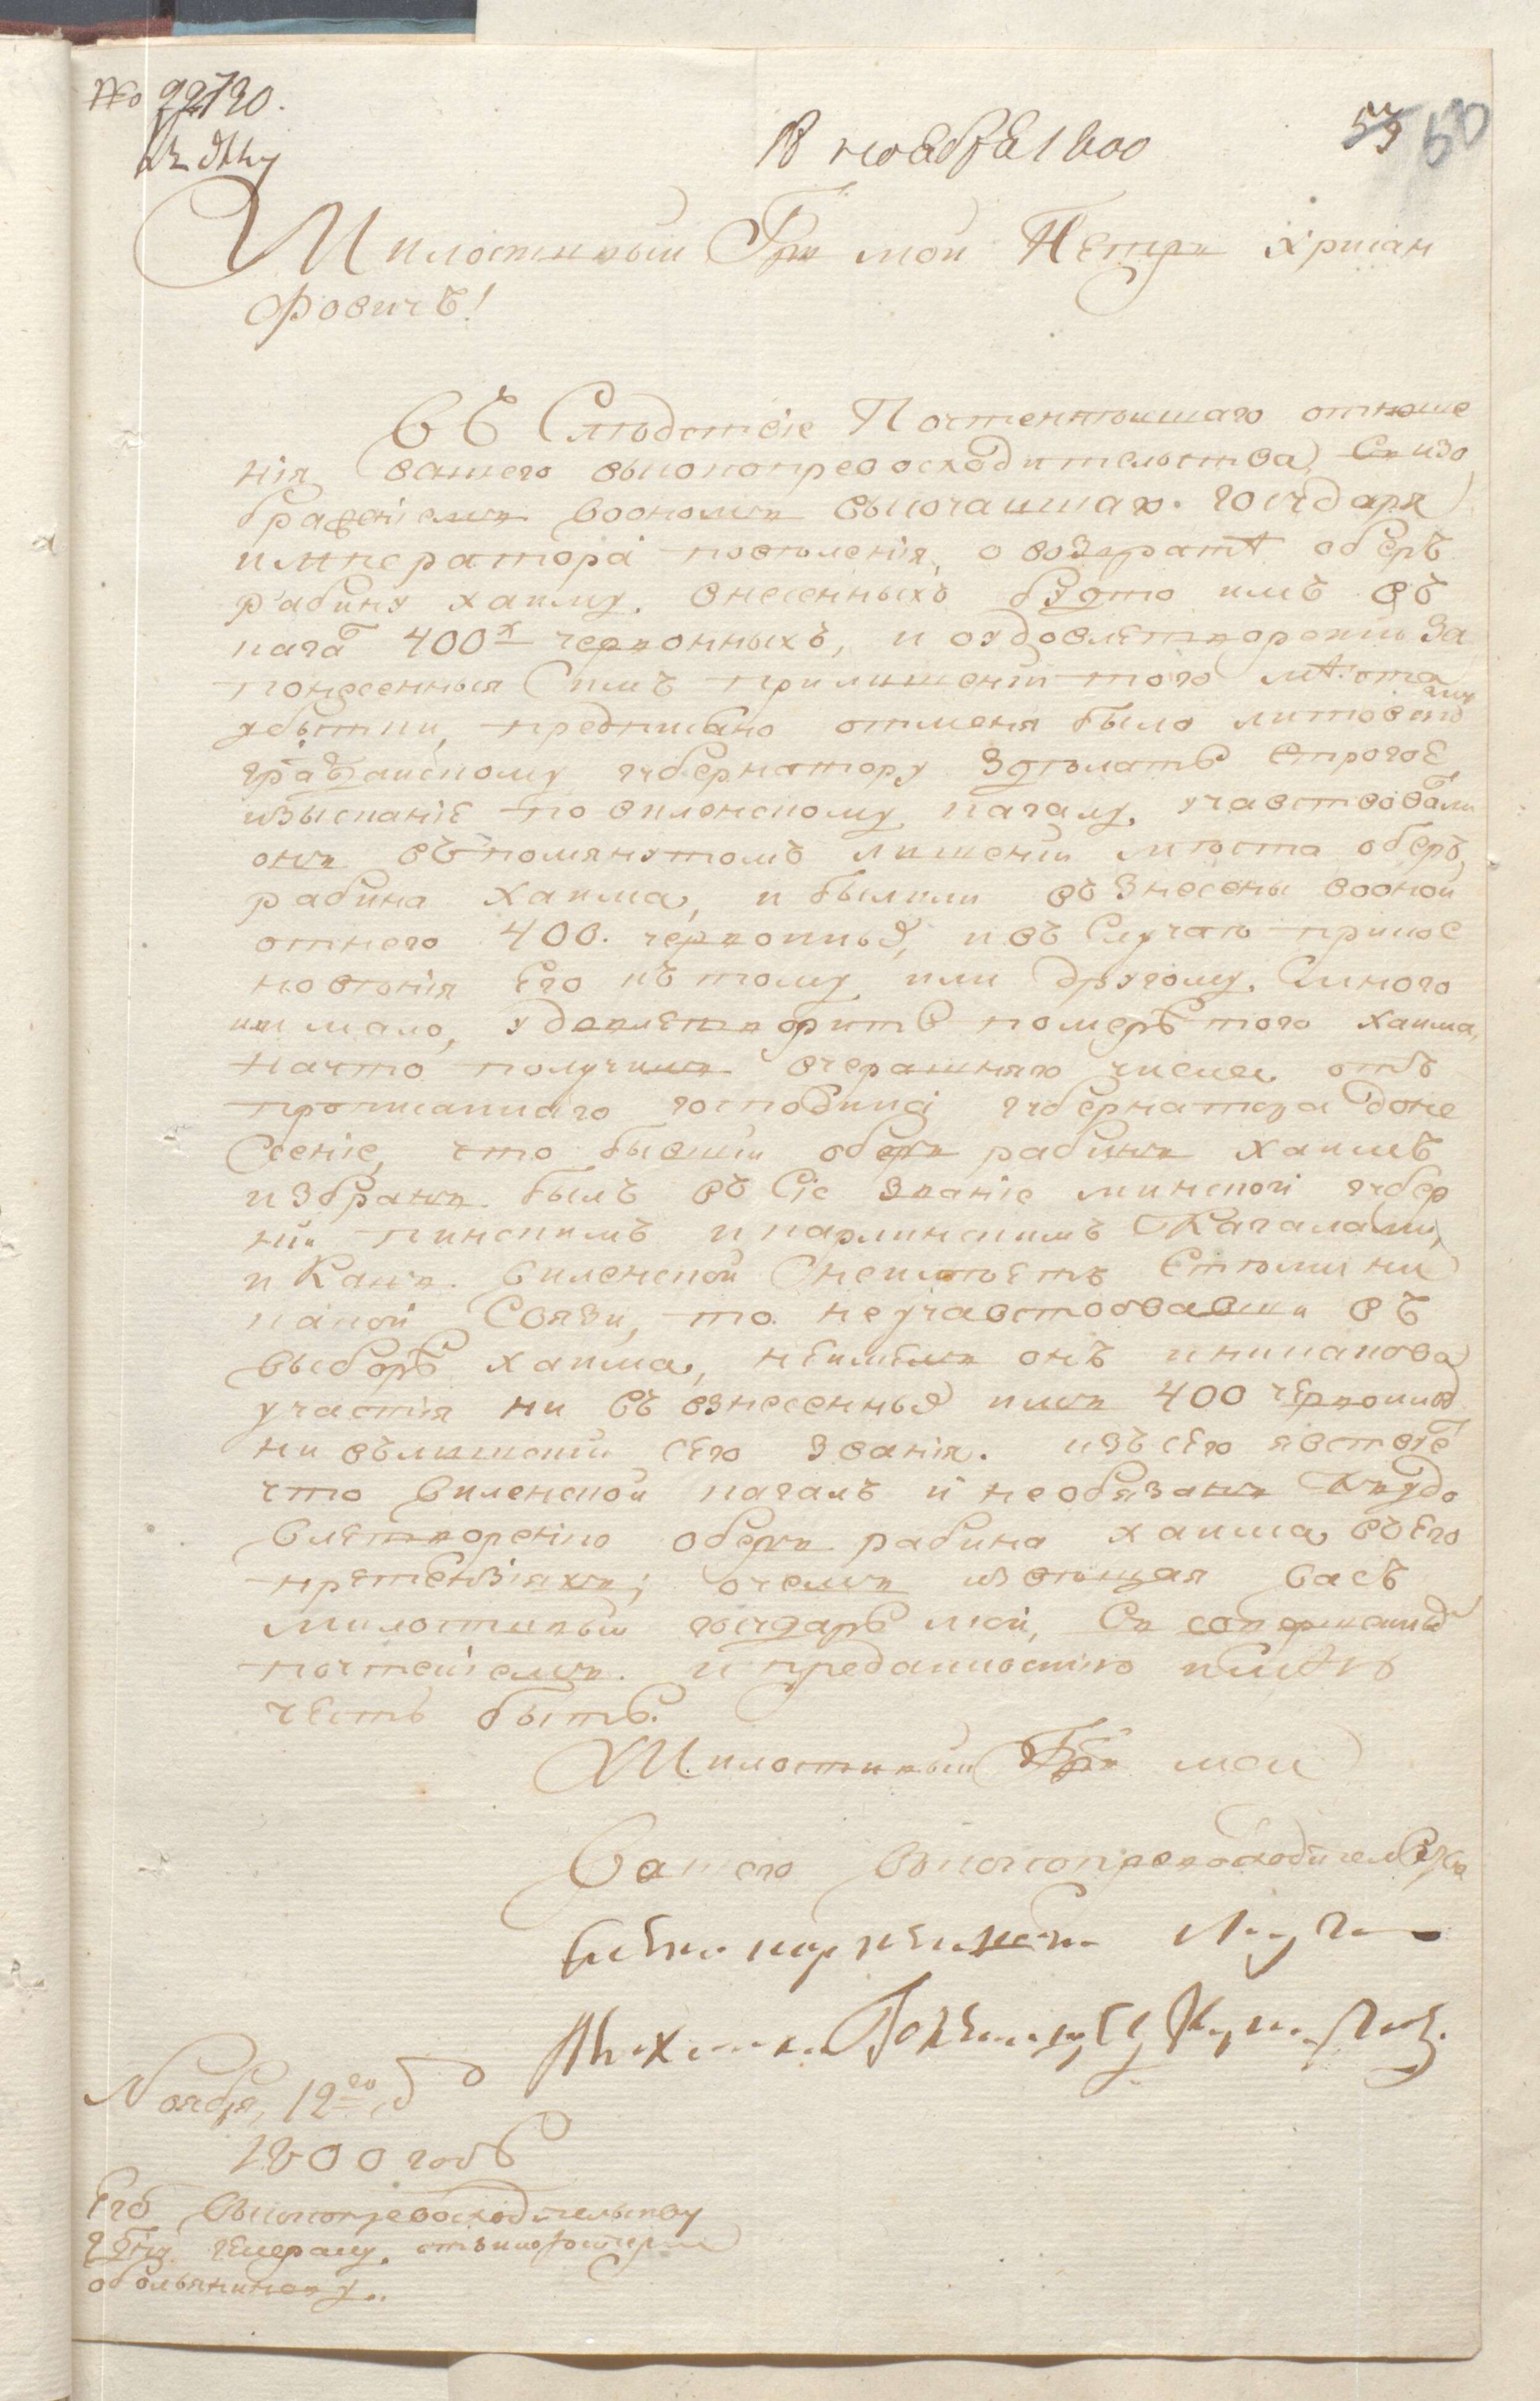 № 22190.
къ дѣлу
18 ноября 1800
59 60
Милостивый Гдрь мой Петръ Хрисан
фовичъ!
Въ Слѣдствіе Почтеннѣйшаго отноше
нія вашего высокопревосходительства, Съ изо
браженіемъ воономъ высочайшаго государя
императора повѣленія, о возвратѣ оберъ
рабину хаиму внесенныхъ будто имъ въ
кагалъ 400х червонныхъ, и оудовлетвореніи за
понесенныя Симъ прилишеніи того мѣста
убытки, предписано отменя было литовскому
гражданскому губернатору Здѣлать Строгоѐ
изысканіе по виленскому кагалу, учавствовалъ
онъ въпомянутомъ лишеніи мѣста оберъ
рабина хаима, и былили въ знесены воонои
отнего 400. червонныя, ивъ Случаю прикос
новѣнія его къ тому или другому. Сколо
или мало, удовлетворить помѣрѣ того хаима,
начто получилъ вчерашняго числа отъ
прописаннаго господина губернатора доне
Сеніе, что бывши оберъ рабинъ хаимъ
избранъ былъ въ Сіе званіе минской губер
ніи пинскимъ и карлинскимъ Кагалами,
и Какъ виленской Снеимѣетъ Стѣми ни
какой Связи, то неучавствовавши въ
выборѣ хаима, неимѣлъ онъ иникакова
участія ни въ взнесенныя имъ 400 червонныя
ни вълишеніи сего званія. изъ сего явствуетъ
что виленской кагалъ и необязанъ къ удо
влетворенію оберъ рабина хаима въ его
претензіяхъ; очемъ извѣщая васъ
милостивый государь мой, Съ совершеннымъ
почтеніемъ и преданностію имѣю
честь быть.
Милостивый Гдрь мой
Вашего Высокопревосходительства
покорнѣйшій слуга
Михаилъ Голенищевъ Кутузовъ.
Ноября, 12го д
1800 года
Его Высокопревосходительству
гдну генералу
обольянинову..